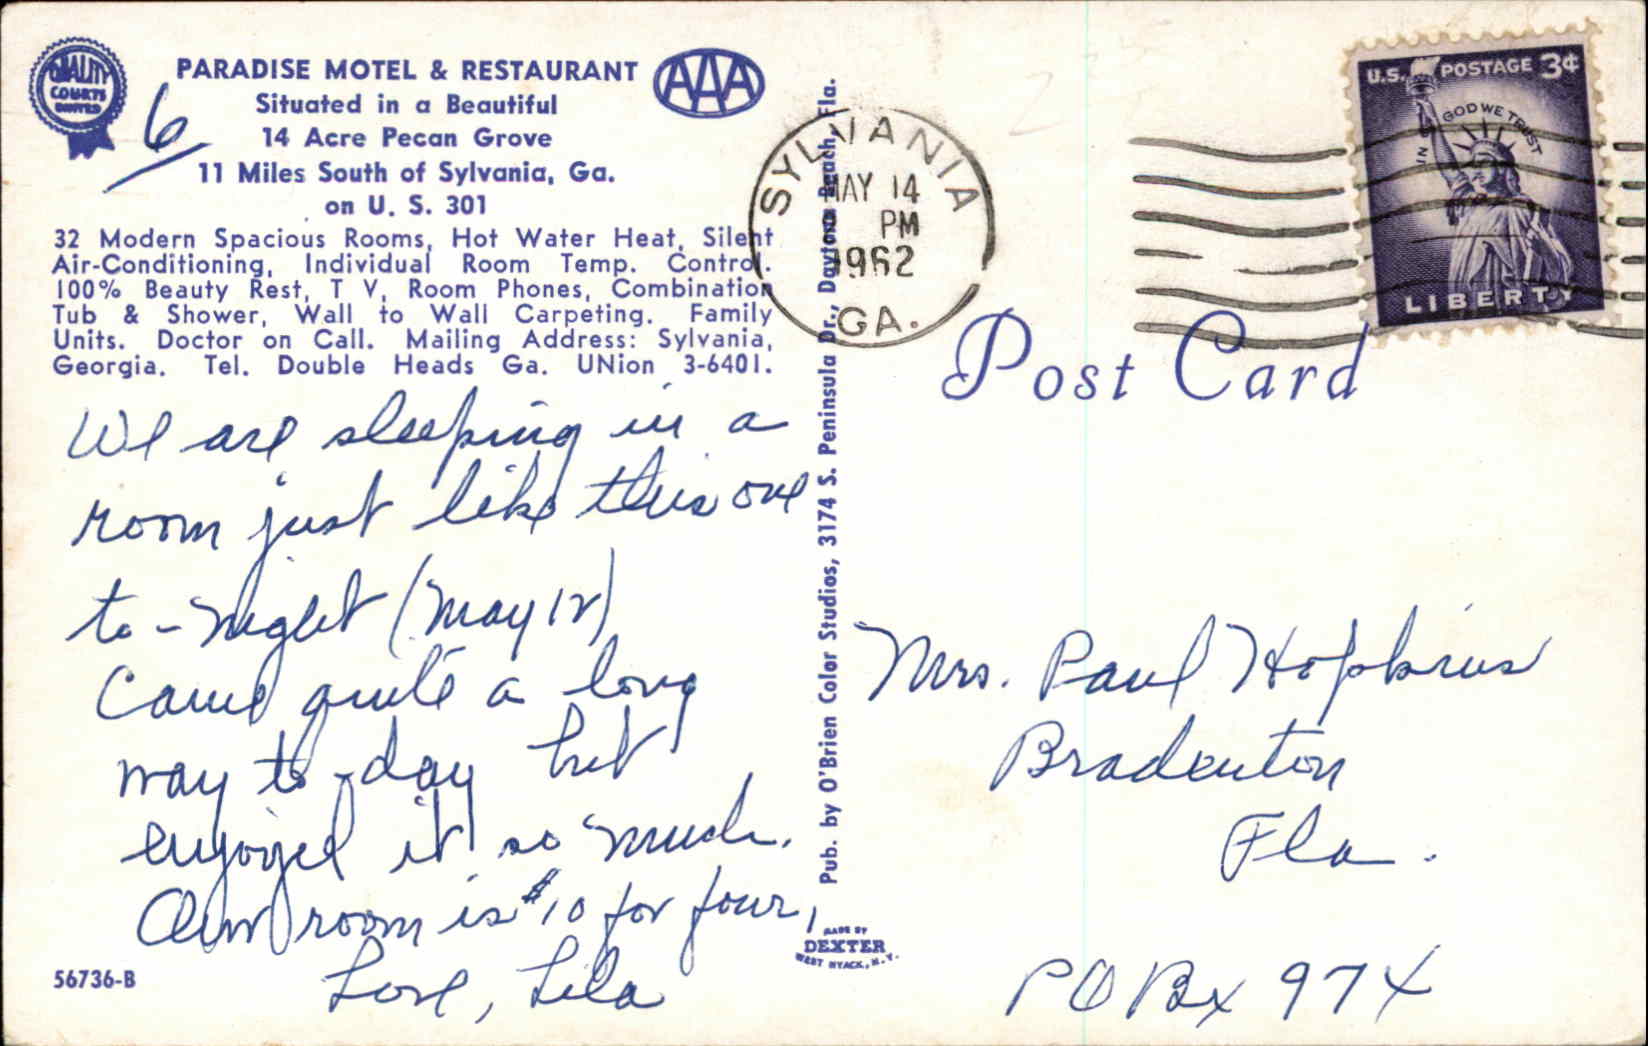 QUALITY
COURTS
UNITED
6
PARADISE MOTEL & RESTAURANT
AAA
Situated in a Beautiful
14 Acre Pecan Grove
11 Miles South of Sylvania, Ga.
on U. S. 301
32 Modern Spacious Rooms, Hot Water Heat, Silent
Air-Conditioning, Individual Room Temp. Control.
100% Beauty Rest, T V, Room Phones, Combination
Tub & Shower, Wall to Wall Carpeting. Family
Units. Doctor on Call. Mailing Address: Sylvania,
Georgia. Tel. Double Heads Ga. UNion 3-6401.
We are sleeping in a
room just like this one
to-night (May 12)
Came quite a long
way to-day but
enjoyed it so much.
Our room is $10 for four,
Love, Lila
56736-B
Pub. by O'Brien Color Studios, 3174 S. Peninsula Dr., Daytona Beach, Fla.
MADE BY
DEXTER
WEST NYACK, N.Y.
SYLVANIA
MAY 14
PM
1962
GA.
U.S. POSTAGE 3¢
IN GOD WE TRUST
LIBERTY
Post Card
Mrs. Paul Hopkins
Bradenton
Fla.
PO Bx 974